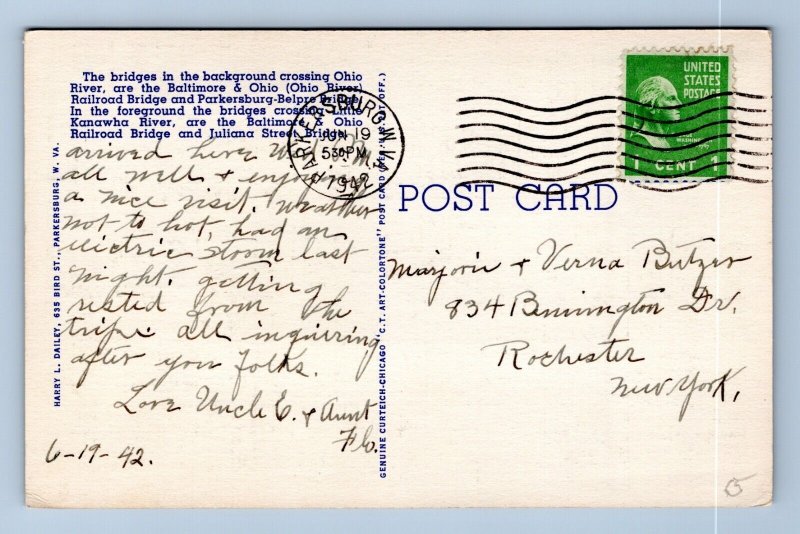 The bridges in the background crossing Ohio
River, are the Baltimore & Ohio (Ohio River)
Railroad Bridge and Parkersburg-Belpre Bridge.
In the foreground the bridges crossing Little
Kanawha River, are the Baltimore & Ohio
Railroad Bridge and Juliana Street Bridge.
arrived here Wed
all well & enjoying
a nice visit. weather
not to hot, had an
electric storm last
night. getting
rested from the
trip. all inquiring
after you folks.
Love Uncle E. & Aunt
Flo.
6-19-42.
HARRY L. DAILEY, 635 BIRD ST., PARKERSBURG, W. VA.
GENUINE CURTEICH-CHICAGO "C.T. ART-COLORTONE" POST CARD (REG. U.S. PAT. OFF.)
PARKERSBURG, W. VA.
JUN 19
5 30 PM
1942
UNITED
STATES
POSTAGE
1 CENT 1
POST CARD
Marjorie & Verna Butzer
834 Bennington Dr.
Rochester
New York,